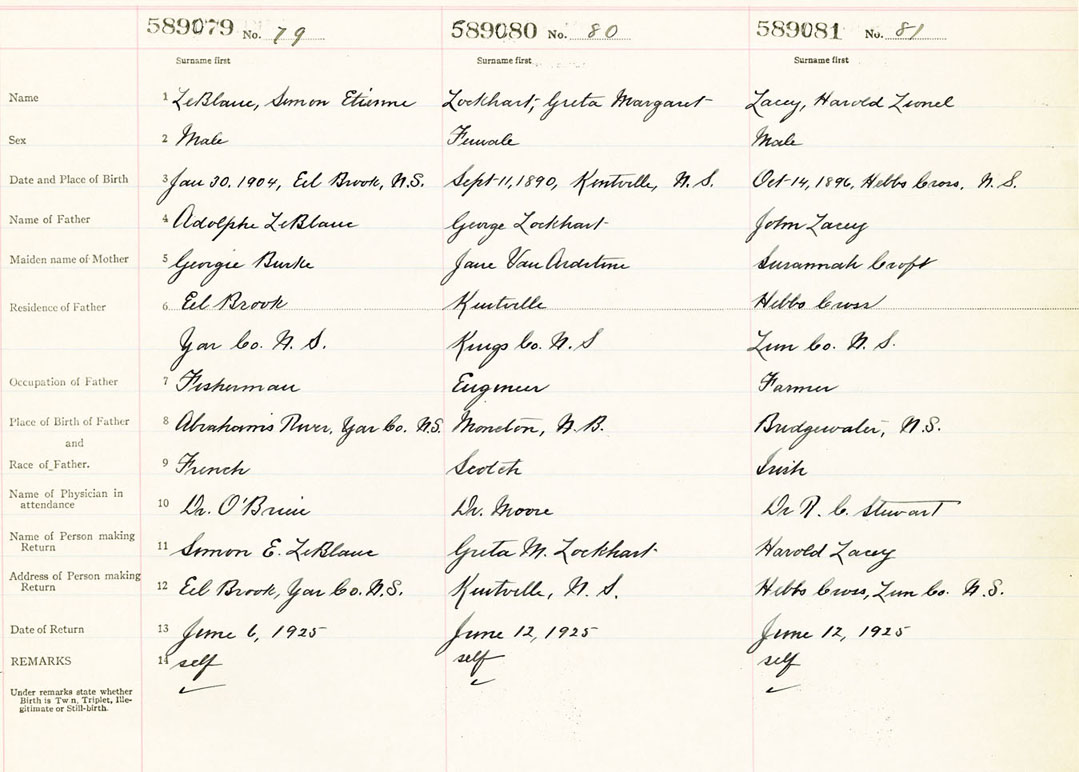 589079 No. 79 589080 No. 80 589081 No. 81
Surname first Surname first Surname first
Name 1 LeBlanc, Simon Etienne Lockhart, Greta Margaret Lacey, Harold Lionel
Sex 2 Male Female Male
Date and Place of Birth 3 Jan 30, 1904, Eel Brook, N.S. Sept 11, 1890, Kentville, N.S. Oct 14, 1896, Hebbs Cross, N.S.
Name of Father 4 Adolphe LeBlanc George Lockhart John Lacey
Maiden name of Mother 5 Georgie Burke Jane Van Ardstine Susannah Croft
Residence of Father 6 Eel Brook Kentville Hebbs Cross
Yar Co. N.S. Kings Co. N.S Lun Co. N.S.
Occupation of Father 7 Fisherman Engineer Farmer
Place of Birth of Father 8 Abrahams River, Yar Co. N.S. Moncton, N.B. Bridgewater, N.S.
and
Race of Father. 9 French Scotch Irish
Name of Physician in
attendance 10 Dr. O'Brien Dr. Moore Dr R. C. Stewart
Name of Person making
Return 11 Simon E. LeBlanc Greta M. Lockhart Harold Lacey
Address of Person making
Return 12 Eel Brook, Yar Co. N.S. Kentville, N.S. Hebbs Cross, Lun Co. N.S.
Date of Return 13 June 6, 1925 June 12, 1925 June 12, 1925
REMARKS 14 self self self
Under remarks state whether
Birth is Twin, Triplet, Ille-
gitimate or Still-birth.